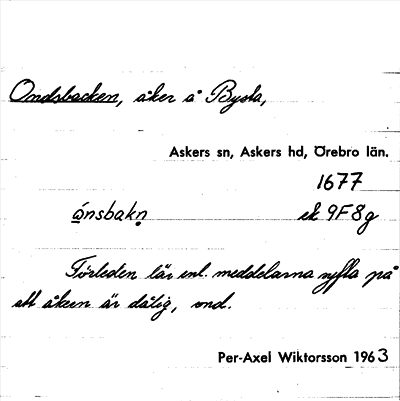 Ondsbacken, åker å Bysta,
Askers sn, Askers hd, Örebro län.
1677
ónsbakn̥ ek 9F8g
Förleden lär enl. meddelarna syfta på
att åkern är dålig, ond.
Per-Axel Wiktorsson 1963